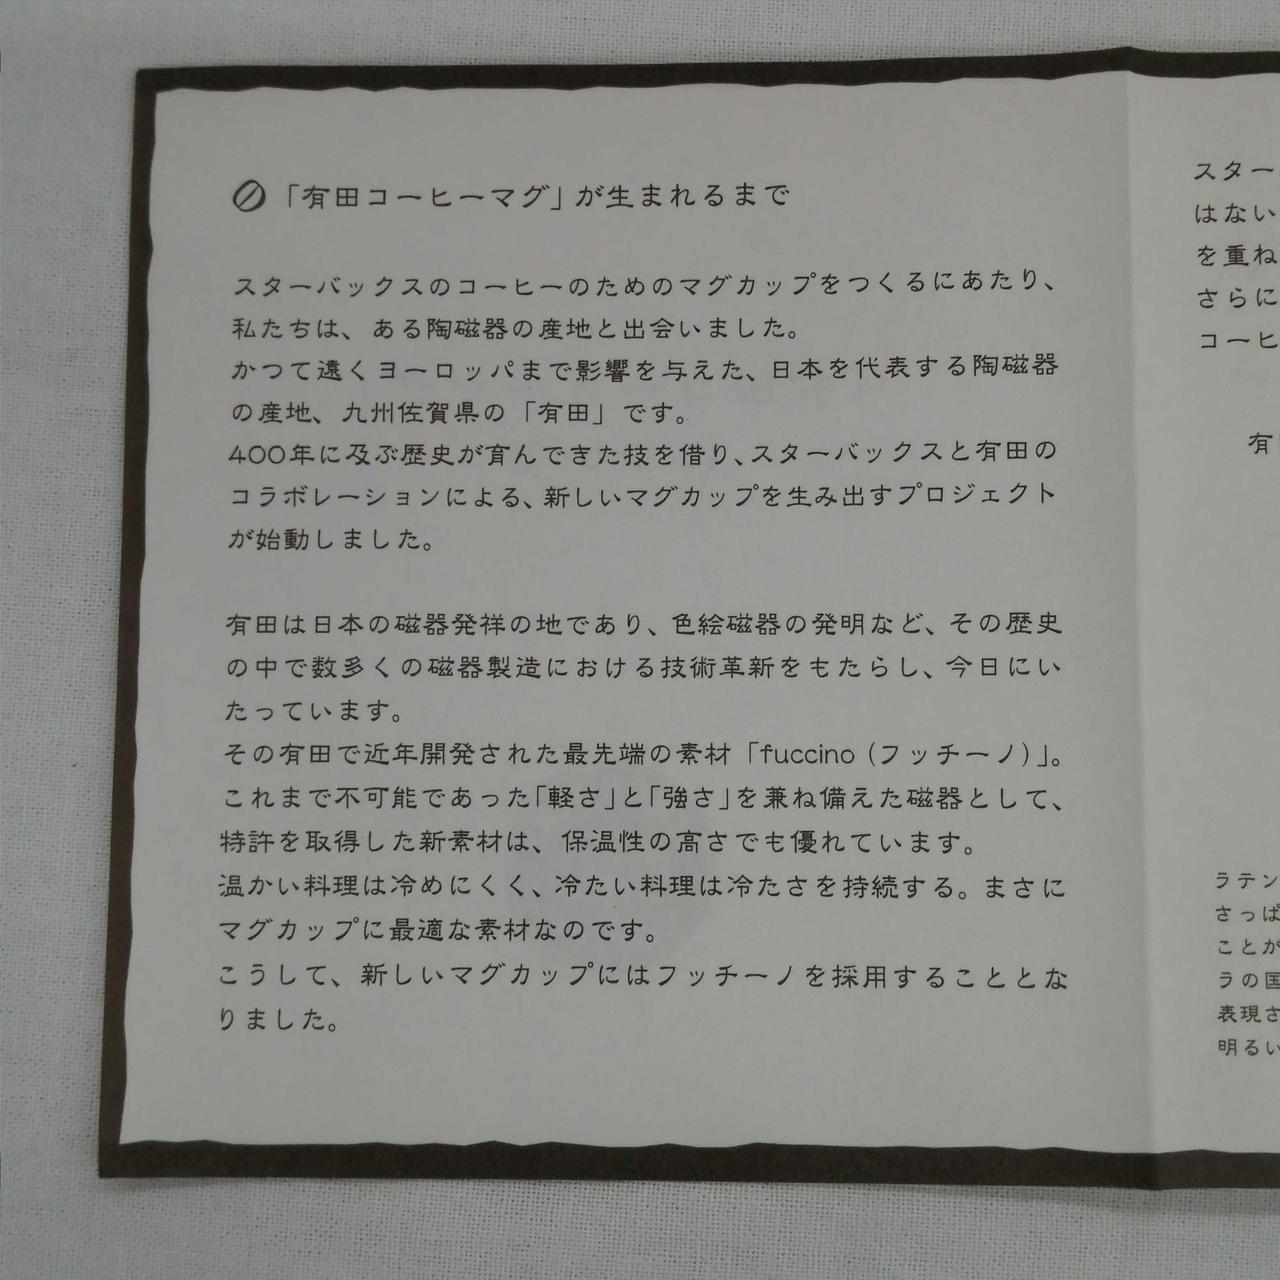 「有田コーヒーマグ」が生まれるまで
スターバックスのコーヒーのためのマグカップをつくるにあたり、
私たちは、ある陶磁器の産地と出会いました。
かつて遠くヨーロッパまで影響を与えた、日本を代表する陶磁器
の産地、九州佐賀県の「有田」です。
400年に及ぶ歴史が育んできた技を借り、スターバックスと有田の
コラボレーションによる、新しいマグカップを生み出すプロジェクト
が始動しました。
有田は日本の磁器発祥の地であり、色絵磁器の発明など、その歴史
の中で数多くの磁器製造における技術革新をもたらし、今日にい
たっています。
その有田で近年開発された最先端の素材「fuccino(フッチーノ)」。
これまで不可能であった「軽さ」と「強さ」を兼ね備えた磁器として、
特許を取得した新素材は、保温性の高さでも優れています。
温かい料理は冷めにくく、冷たい料理は冷たさを持続する。まさに
マグカップに最適な素材なのです。
こうして、新しいマグカップにはフッチーノを採用することとな
りました。
スター
はない
を重ね
さらに
コーヒ
有
ラテン
さっぱ
ことが
ラの国
表現さ
明るい